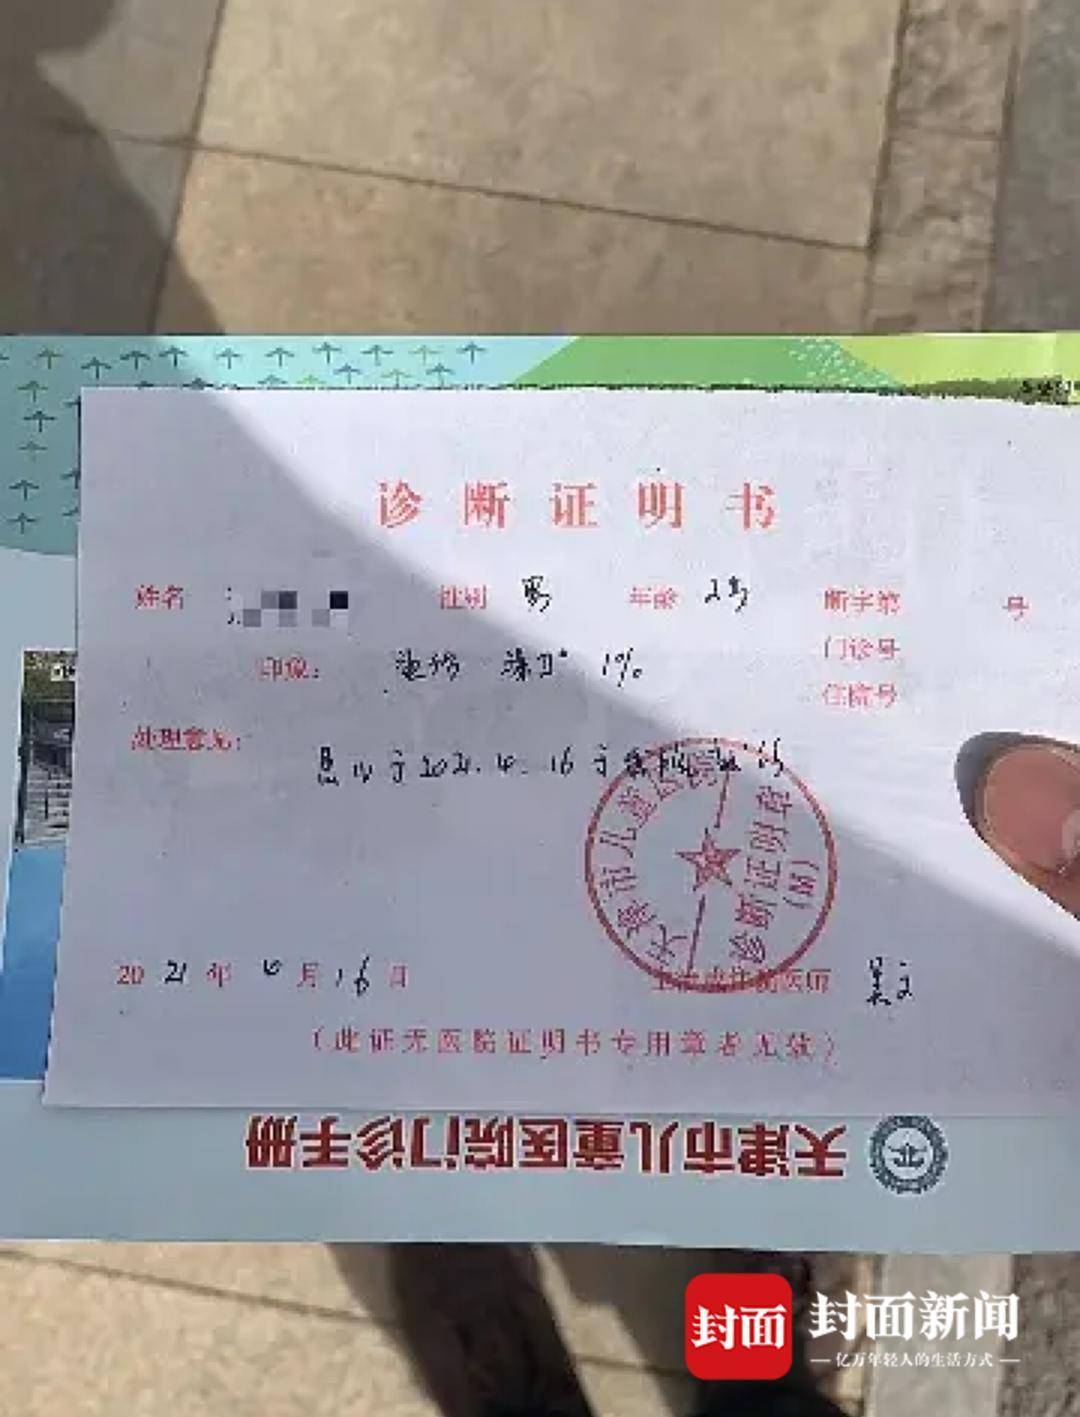 诊断证明书
姓名 性别 男 年龄 2岁 断字第 号
门诊号
印象： 烫伤 深Ⅱ° 1%
住院号
处理意见：
患儿于2021.4.16于我院
天津市儿童医院
诊断证明章
2021年4月16日 医师
(此证无医院证明书专用章者无效)
天津市儿童医院门诊手册
封面 封面新闻
亿万年轻人的生活方式